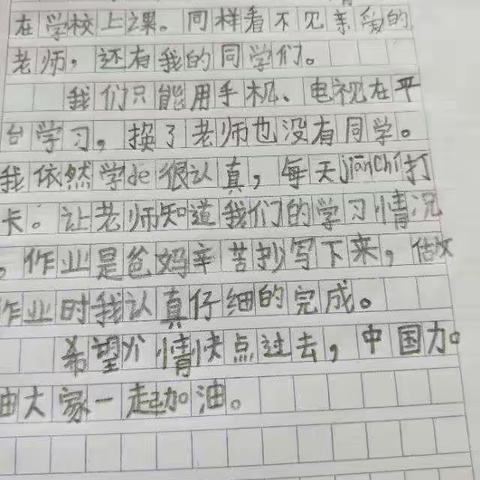 在学校上课。同样看不见亲爱的
老师，还有我的同学们。
我们只能用手机、电视在平
台学习，换了老师也没有同学。
我依然学de很认真，每天jiānchí打
卡。让老师知道我们的学习情况
。作业是爸妈辛苦抄写下来，做
作业时我认真仔细的完成。
希望情快点过去，中国加
油大家一起加油。